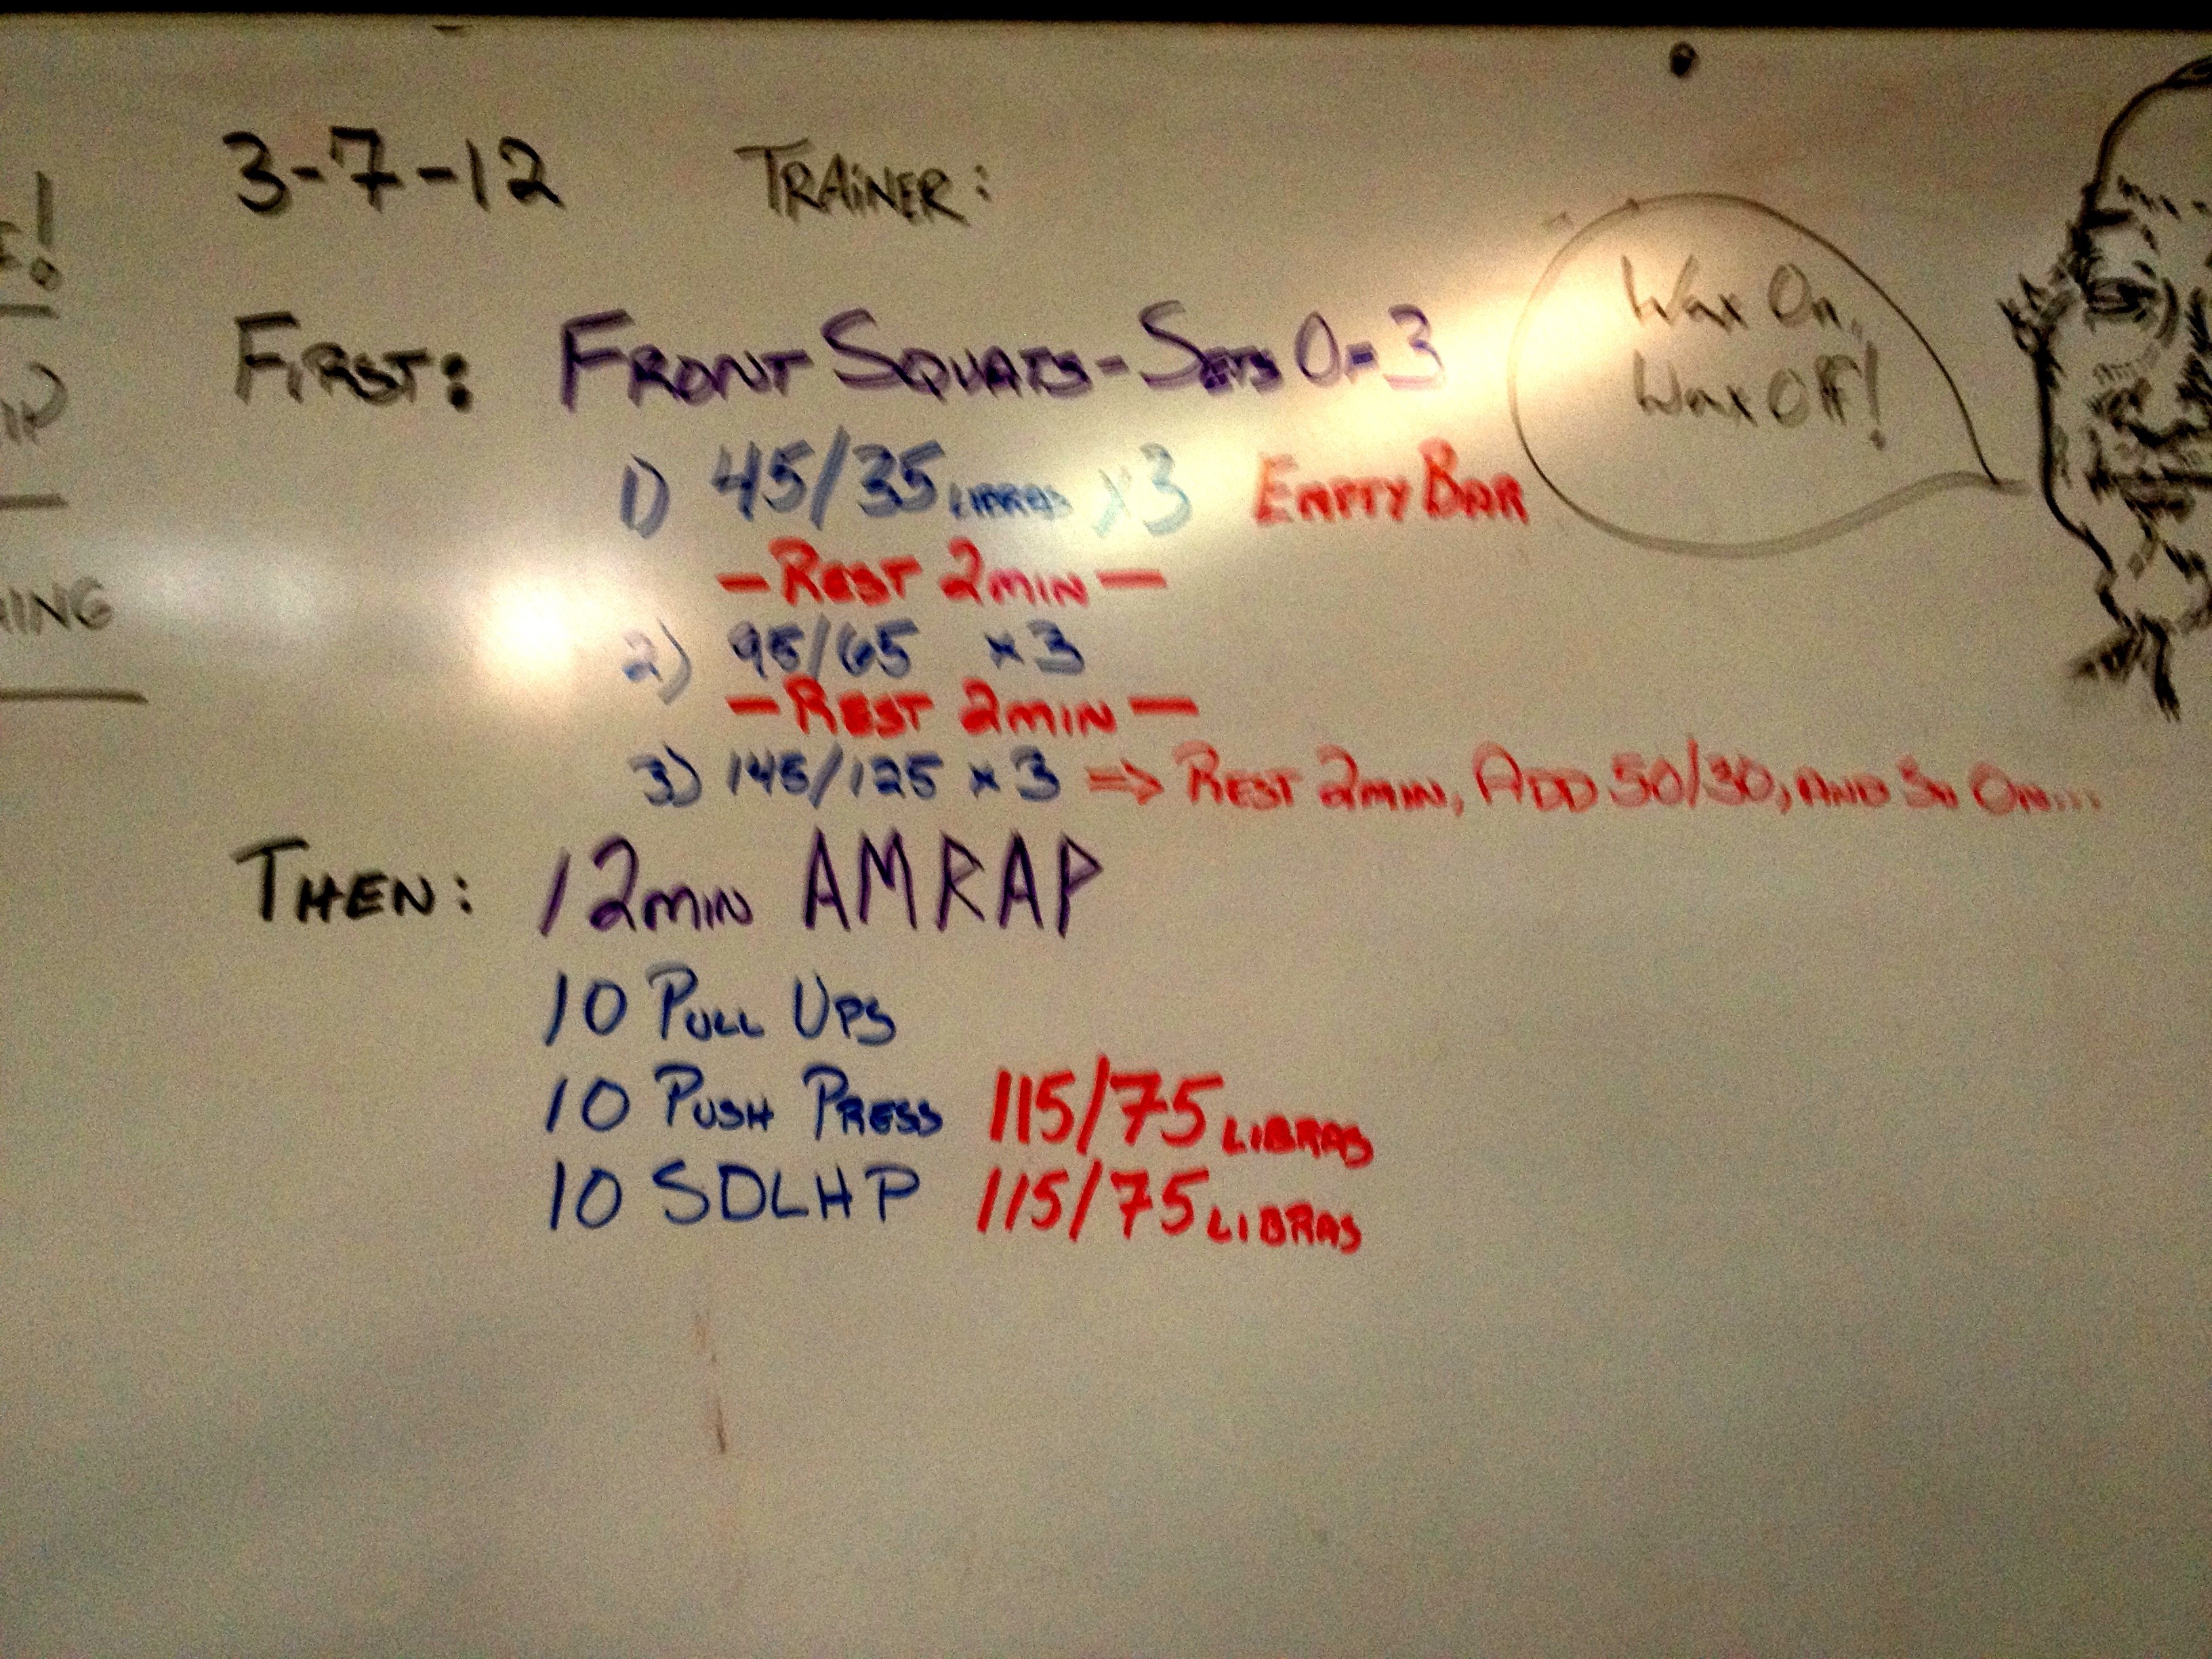 3-7-12 TRAINER:
FIRST: FRONT SQUATS - SETS OF 3
1) 45/35 LIBRAS x3 EMPTY BAR
- REST 2MIN -
2) 95/65 x3
- REST 2MIN -
3) 145/125 x3 => REST 2MIN, ADD 50/30, AND SO ON...
THEN: 12MIN AMRAP
10 PULL UPS
10 PUSH PRESS 115/75 LIBRAS
10 SDLHP 115/75 LIBRAS
Wax On,
Wax Off!